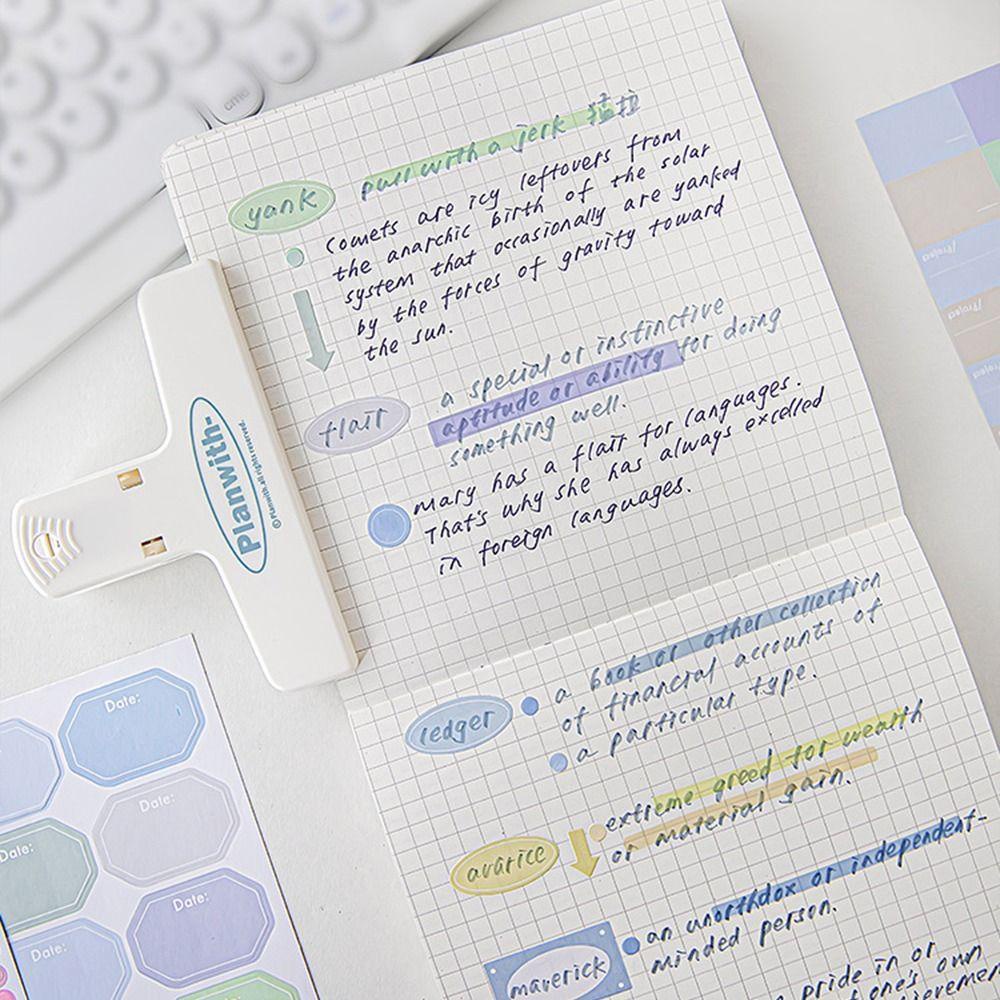 cmd
yank
pull with a jerk 猛拉
Comets are icy leftovers from
the anarchic birth of the solar
system that occasionally are yanked
by the forces of gravity toward
the sun.
flair
a special or instinctive
aptitude or ability for doing
something well.
Mary has a flair for languages.
That's why she has always excelled
in foreign languages.
Planwith-
© Planwith. All rights reserved.
ledger
a book or other collection
of financial accounts of
a particular type.
avarice
extreme greed for wealth
or material gain.
maverick
an unorthdox or independent-
minded person.
pride in or
one's own
Date:
Date:
Date:
Date:
Date:
/Project
/Project
/Project